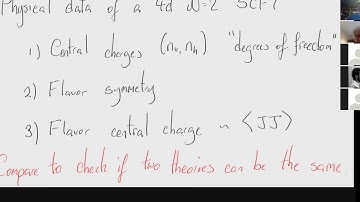 Physical data of a 4d N=2 SCFT
1) Central charges (nv, nh) "degrees of freedom"
2) Flavor symmetry
3) Flavor central charge ~ ⟨JJ⟩
Compare to check if two theories can be the same